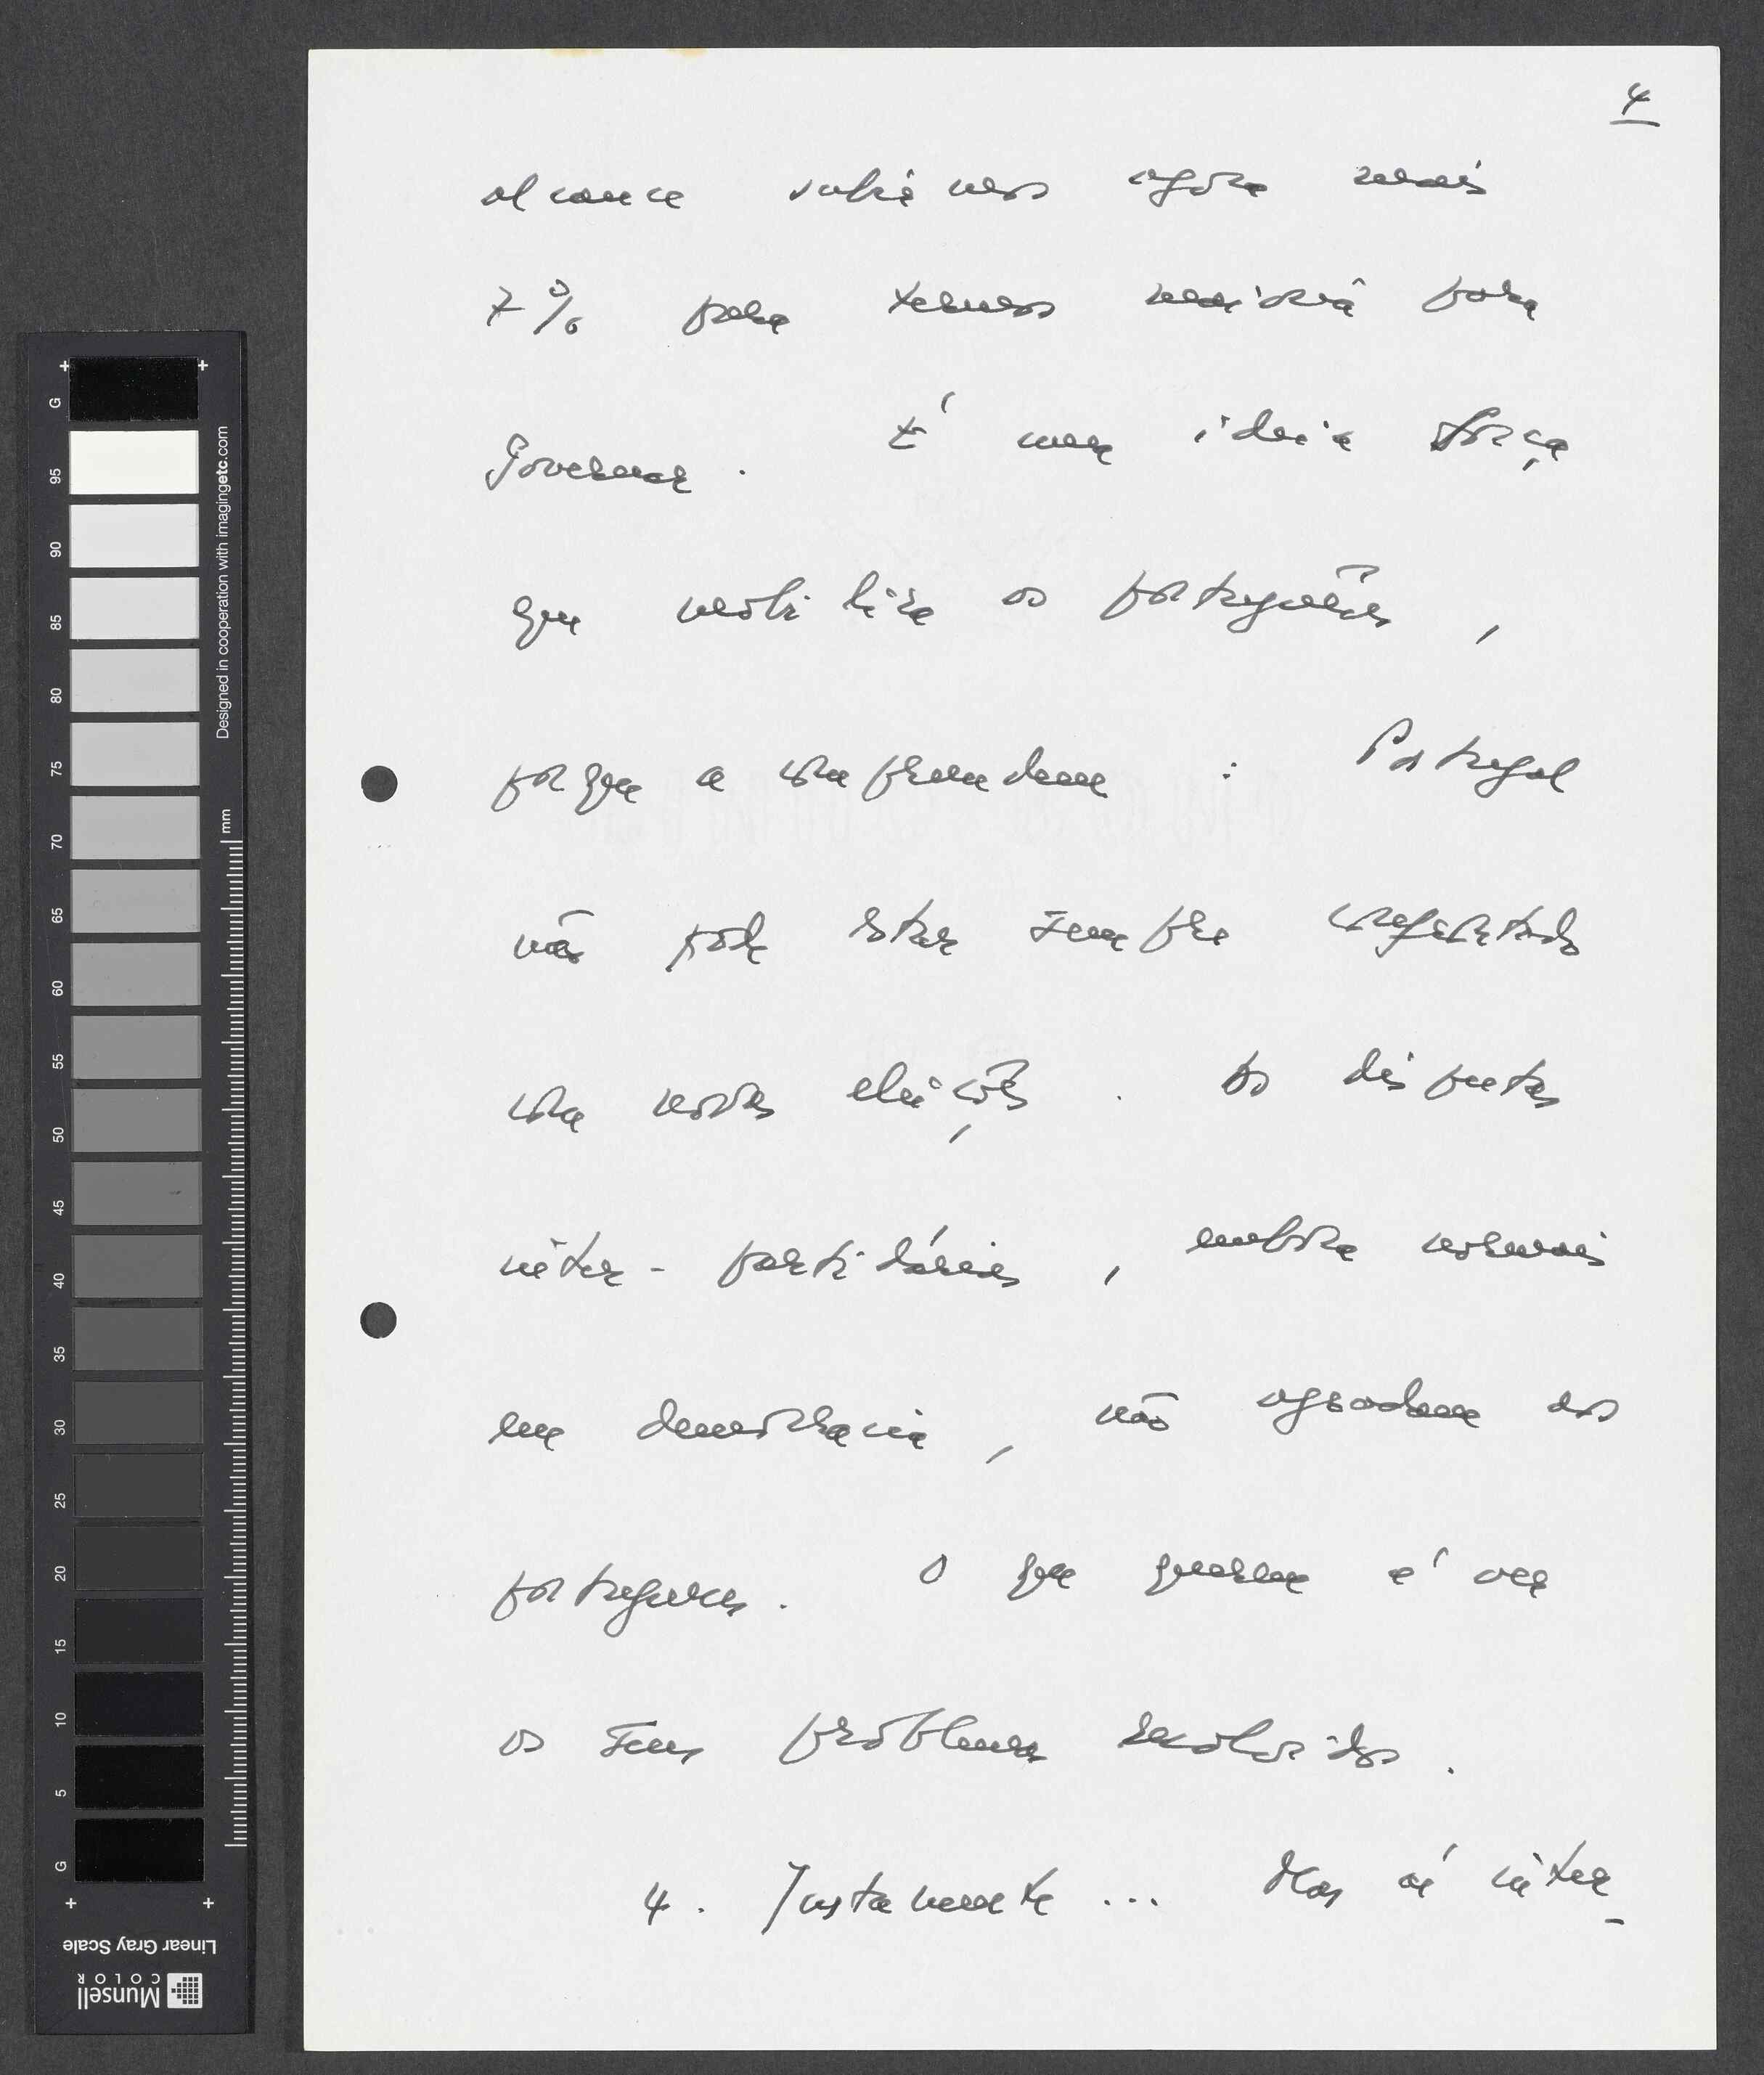 4
alcance subirmos agora mais
7% para termos maioria para
Governar. É uma ideia força
que mobiliza os portugueses,
porque a compreendem: Portugal
não pode estar sempre confrontado
com novas eleições. As disputas
inter-partidárias, embora normais
em democracia, não agradam aos
portugueses. O que querem é ver
os seus problemas resolvidos.
4. Justamente... Mas aí inter-
G
95
90
85
80
75
70
65
60
55
50
45
40
35
30
25
20
15
10
5
G
Designed in cooperation with imagingetc.com
mm
Linear Gray Scale
Munsell
COLOR